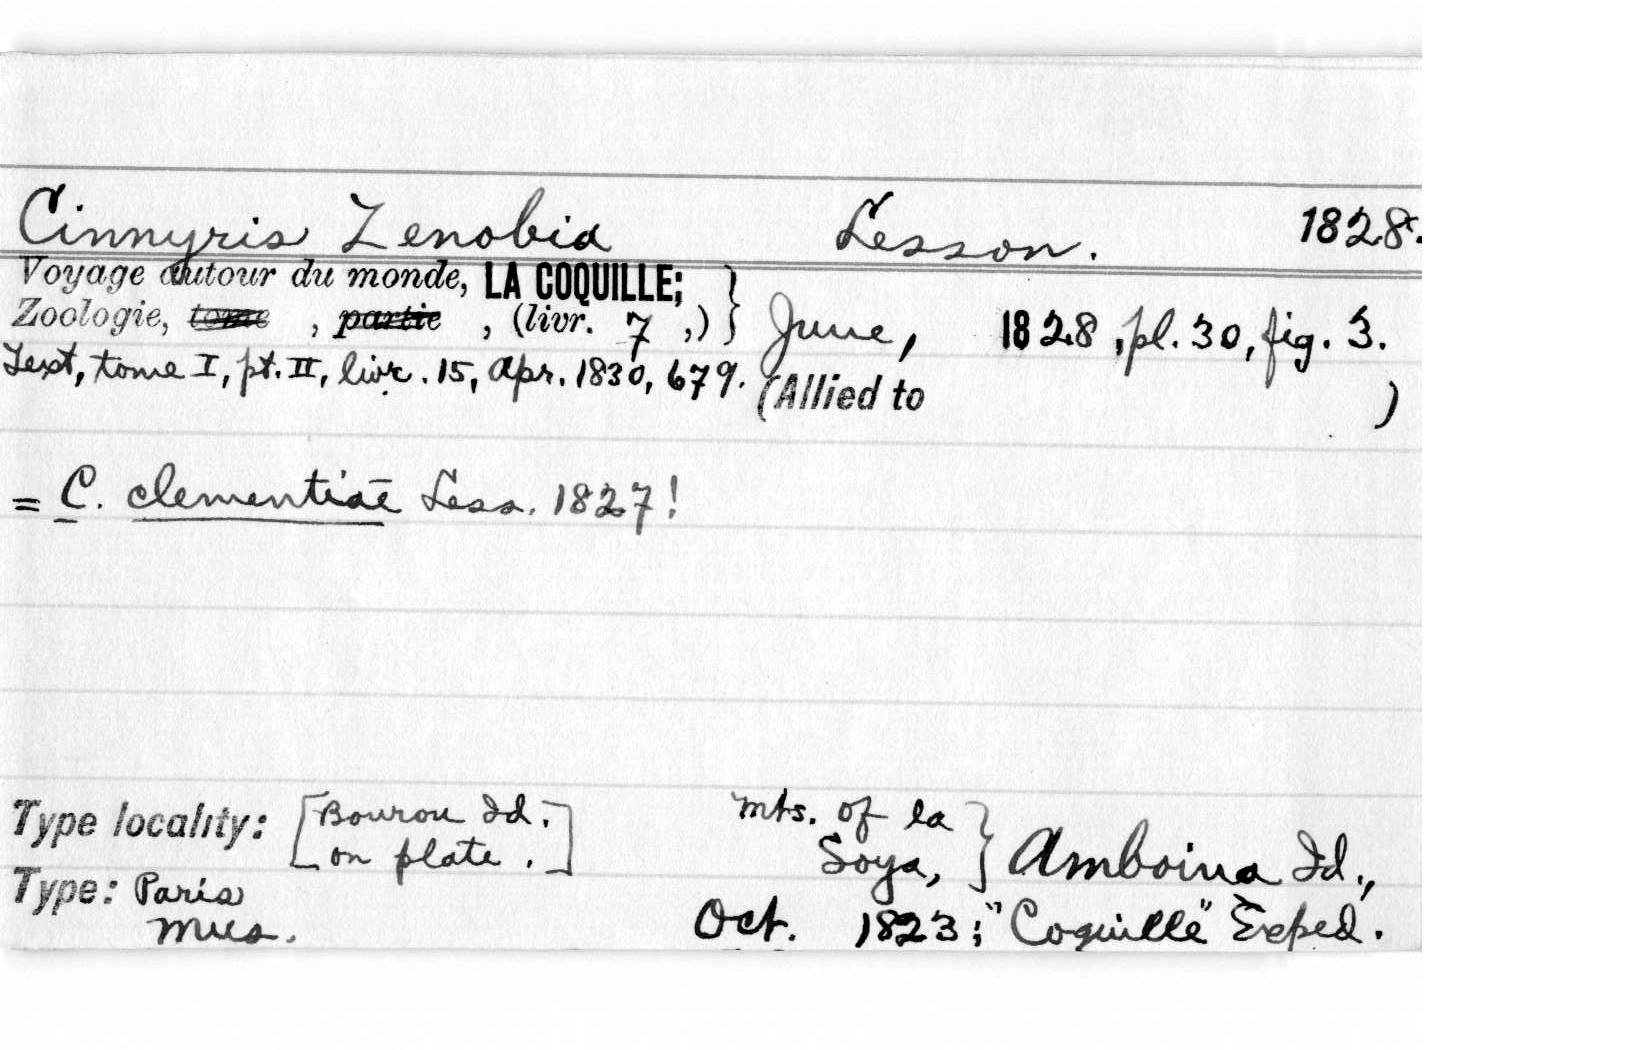 Cinnyris Zenobia Lesson. 1828.
Voyage autour du monde, LA COQUILLE;
Zoologie, tome , partie , (livr. 7 ,) } June, 1828, pl. 30, fig. 3.
Text, tome I, pt. II, livr. 15, Apr. 1830, 679. (Allied to )
= C. clementiae Less. 1827!
Type locality: [Bourou Id. on plate.] Mts. of la Soya, } Amboina Id.,
Type: Paris Mus. Oct. 1823; "Coquille" Exped.